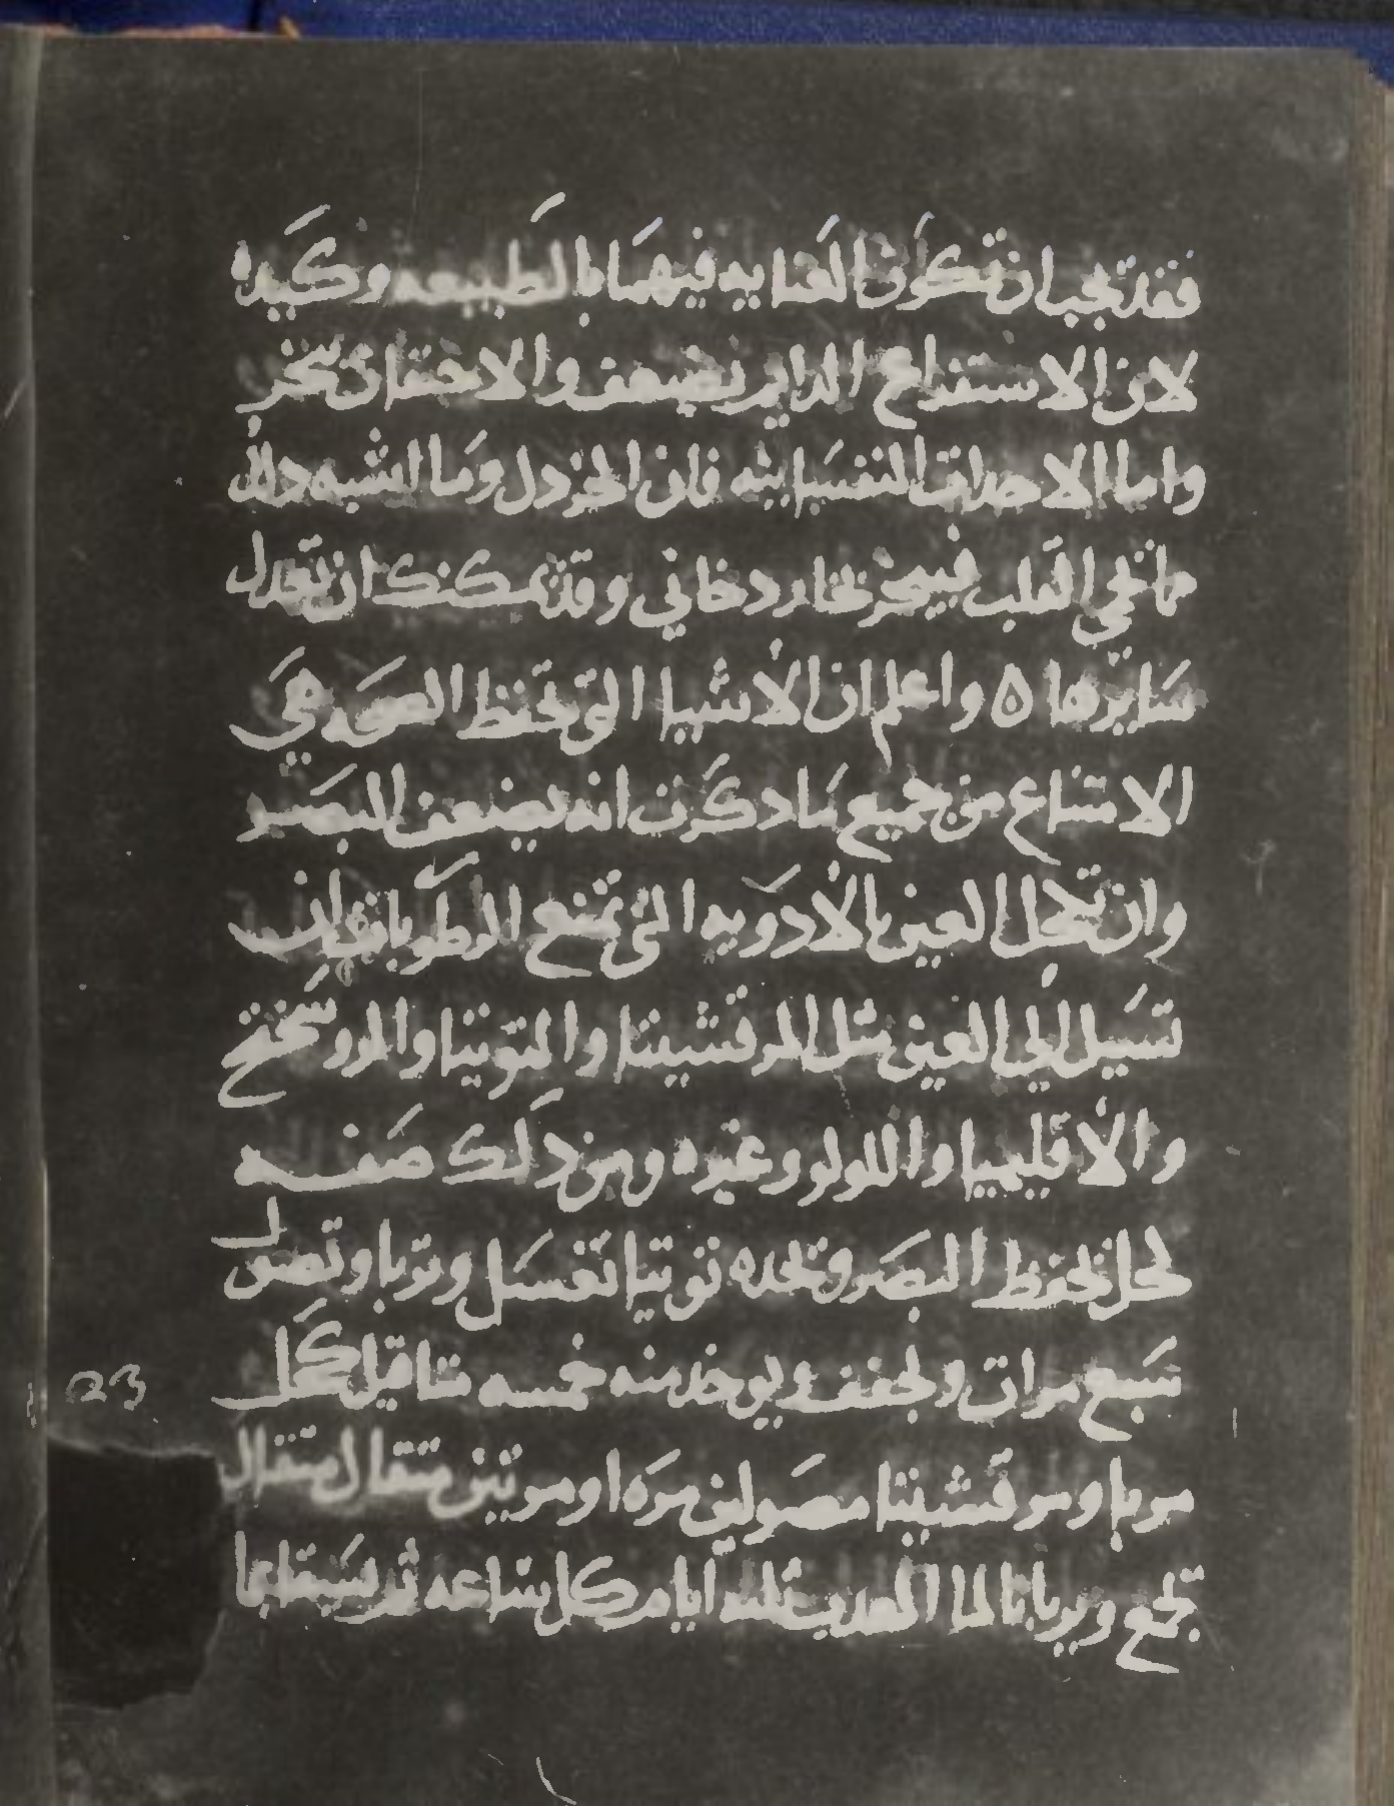 فقد يجب ان تكون العنايه فيهما بالطبيعه وكيده
لان الاستفراغ الدايم يضعف والاحتقان يبخر
واما الاحداث النفسانيه فان الخردل وما اشبه دلك
مما نحي القلب فيبخر بخار دخاني وقد يمكنك ان تعدل
سايرها ه واعلم ان الاشيا التي تحفظ الصحه هي
الامتناع من جميع ما دكرت انه يضعف البصر
وان تكحل العين بالادويه التي تمنع الرطوبات ان
تسيل الي العين مثل المرقشيتا والتوتيا والروسختج
والاقليميا واللولو وغيره ومن دلك صفه
كحل يحفظ البصر وتحده توتيا تغسل وتربا وتصول
سبع مرات وتجفف ويوخد منه خمسه مثاقيل كحل
مربا ومرقشيتا مصولين مره او مرتين مثقال مثقال
تجمع ويربا بالما العدب ثلثه ايام كل ساعه ثم يسقا بما
23